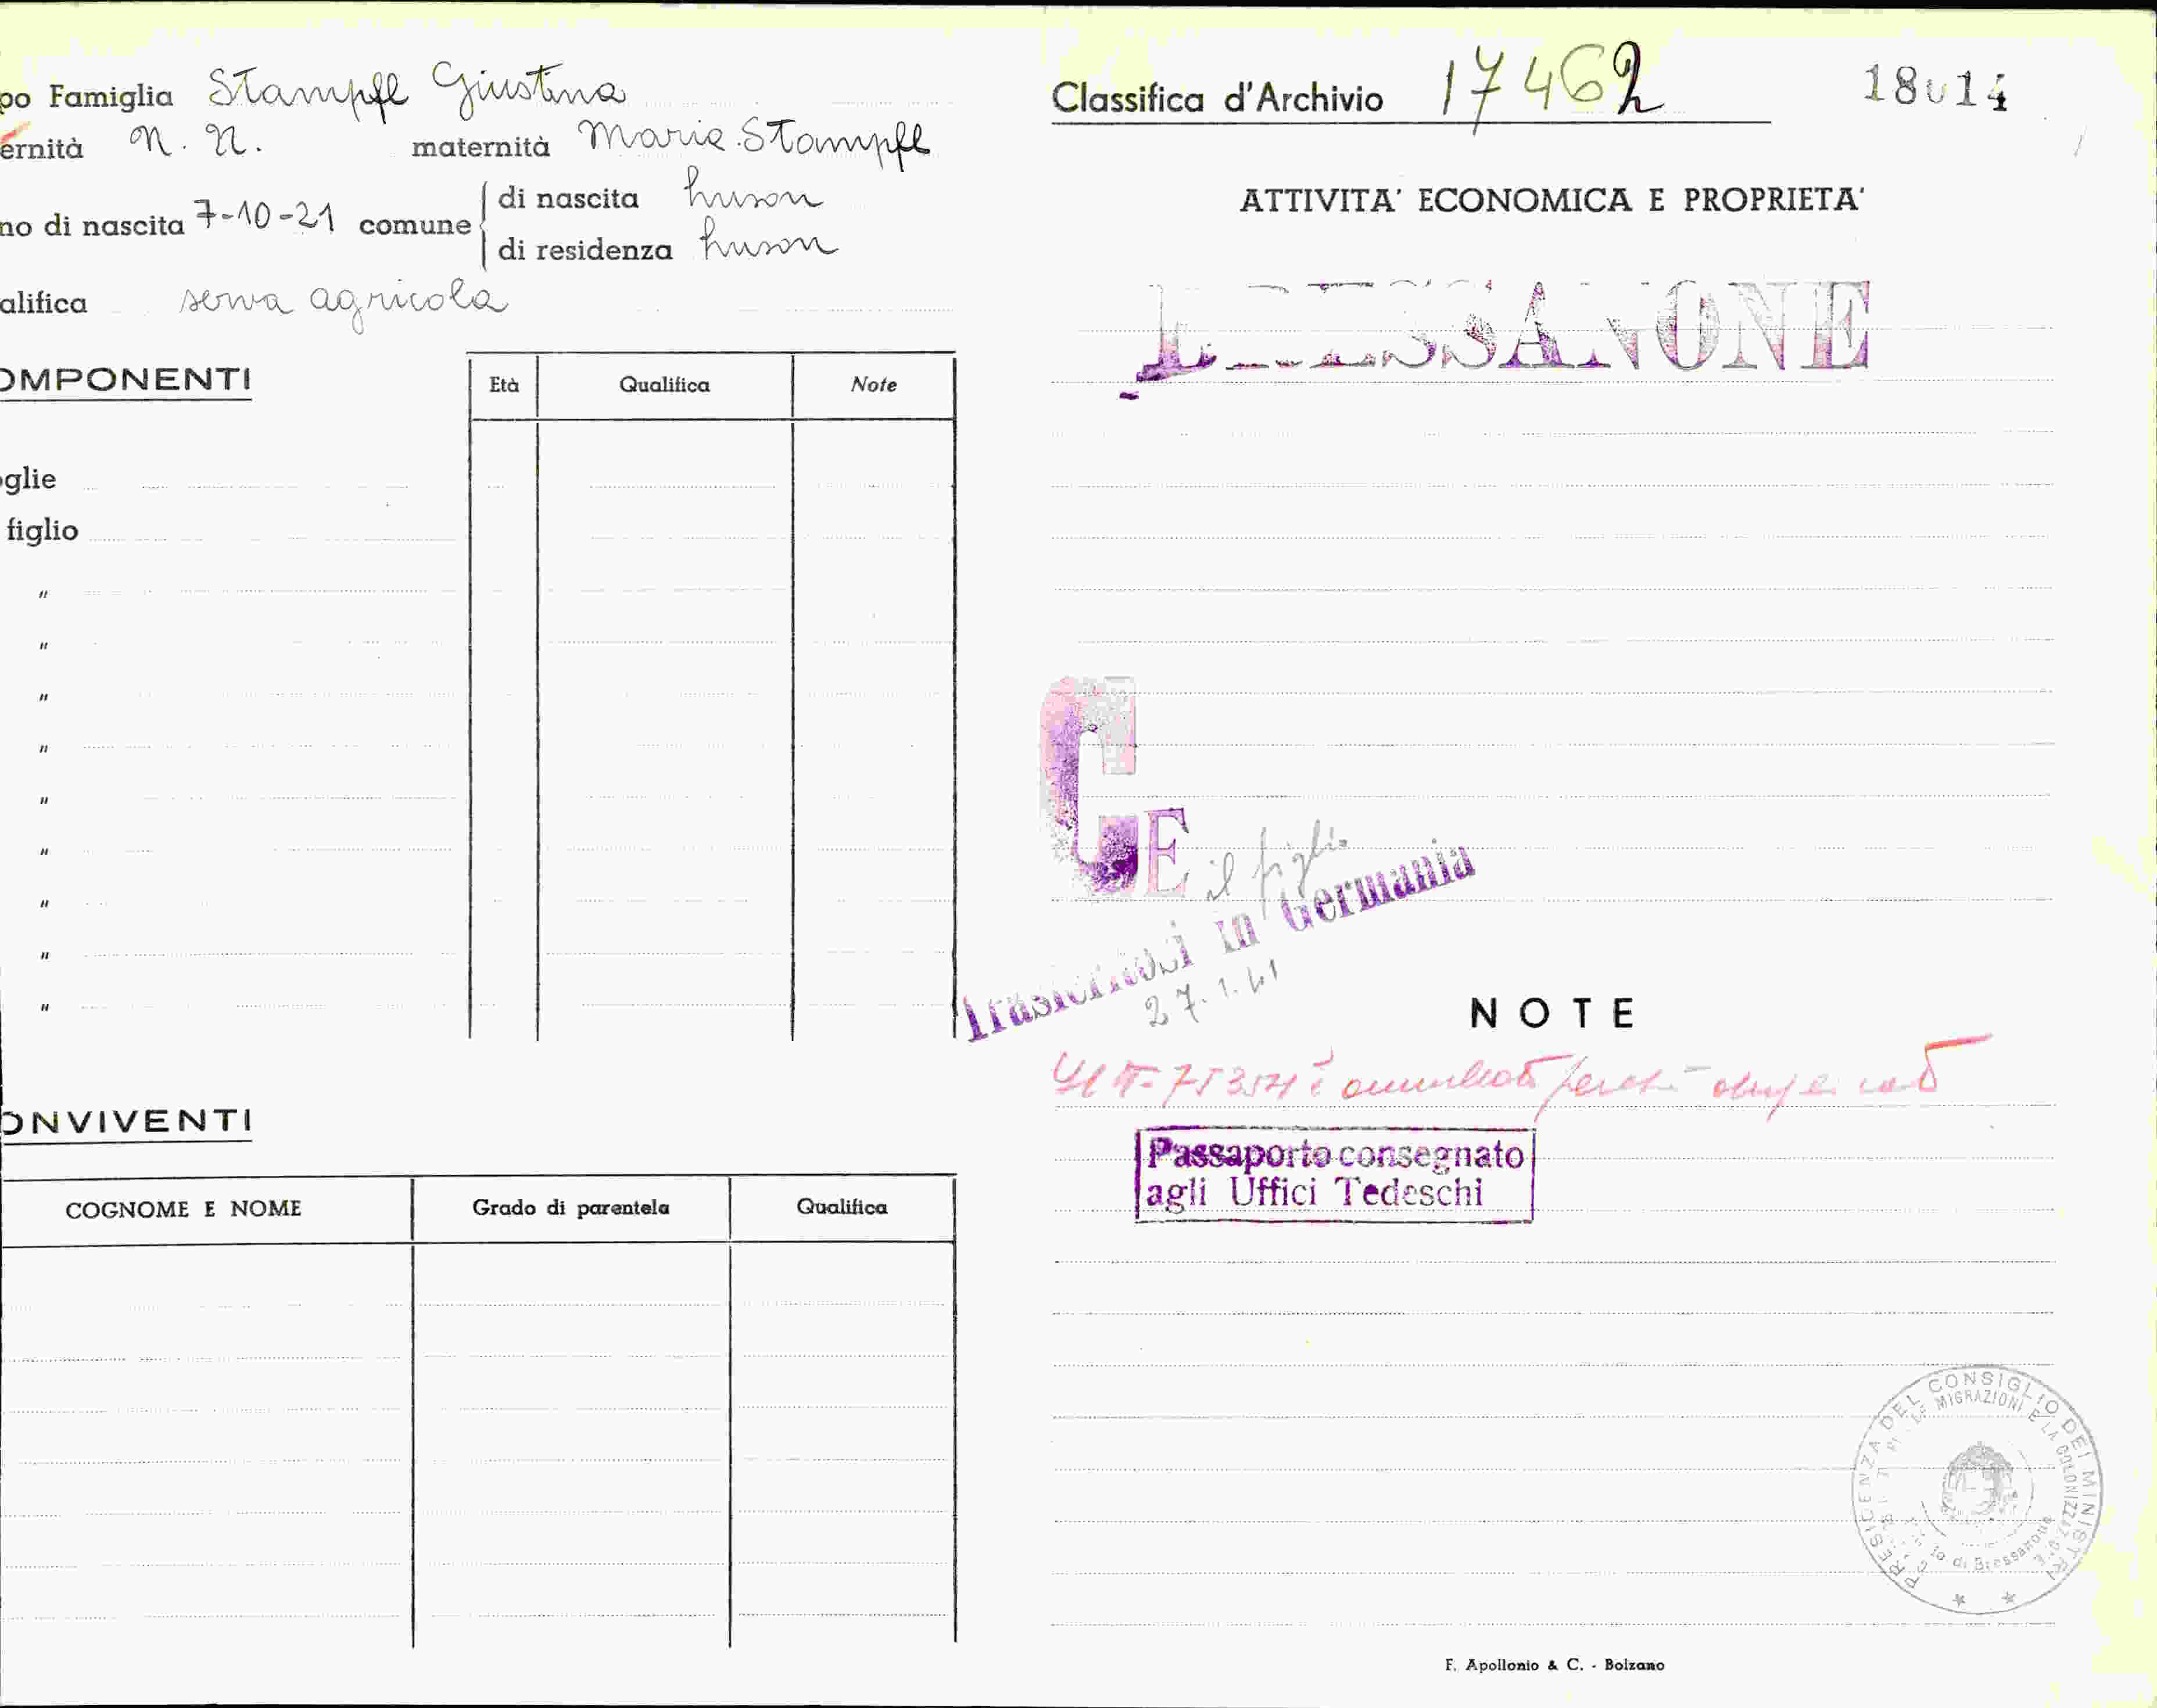 po Famiglia Stampfl Giustina
ernità N. N. maternità Maria Stampfl
no di nascita 7-10-21 comune di nascita Luson
di residenza Luson
alifica serva agricola
OMPONENTI
Età Qualifica Note
glie
figlio
"
"
"
"
"
"
"
"
"
ONVIVENTI
COGNOME E NOME Grado di parentela Qualifica
Classifica d'Archivio 17462 18014
ATTIVITA' ECONOMICA E PROPRIETA'
BRESSANONE
C E il figlio
Trasferitosi in Germania
27.1.41
NOTE
è annullato perché
Passaporto consegnato
agli Uffici Tedeschi
PRESIDENZA DEL CONSIGLIO DEI MINISTRI
MIGRAZIONI E LA COLONIZZAZIONE
di Bressanone
F. Apollonio & C. - Bolzano